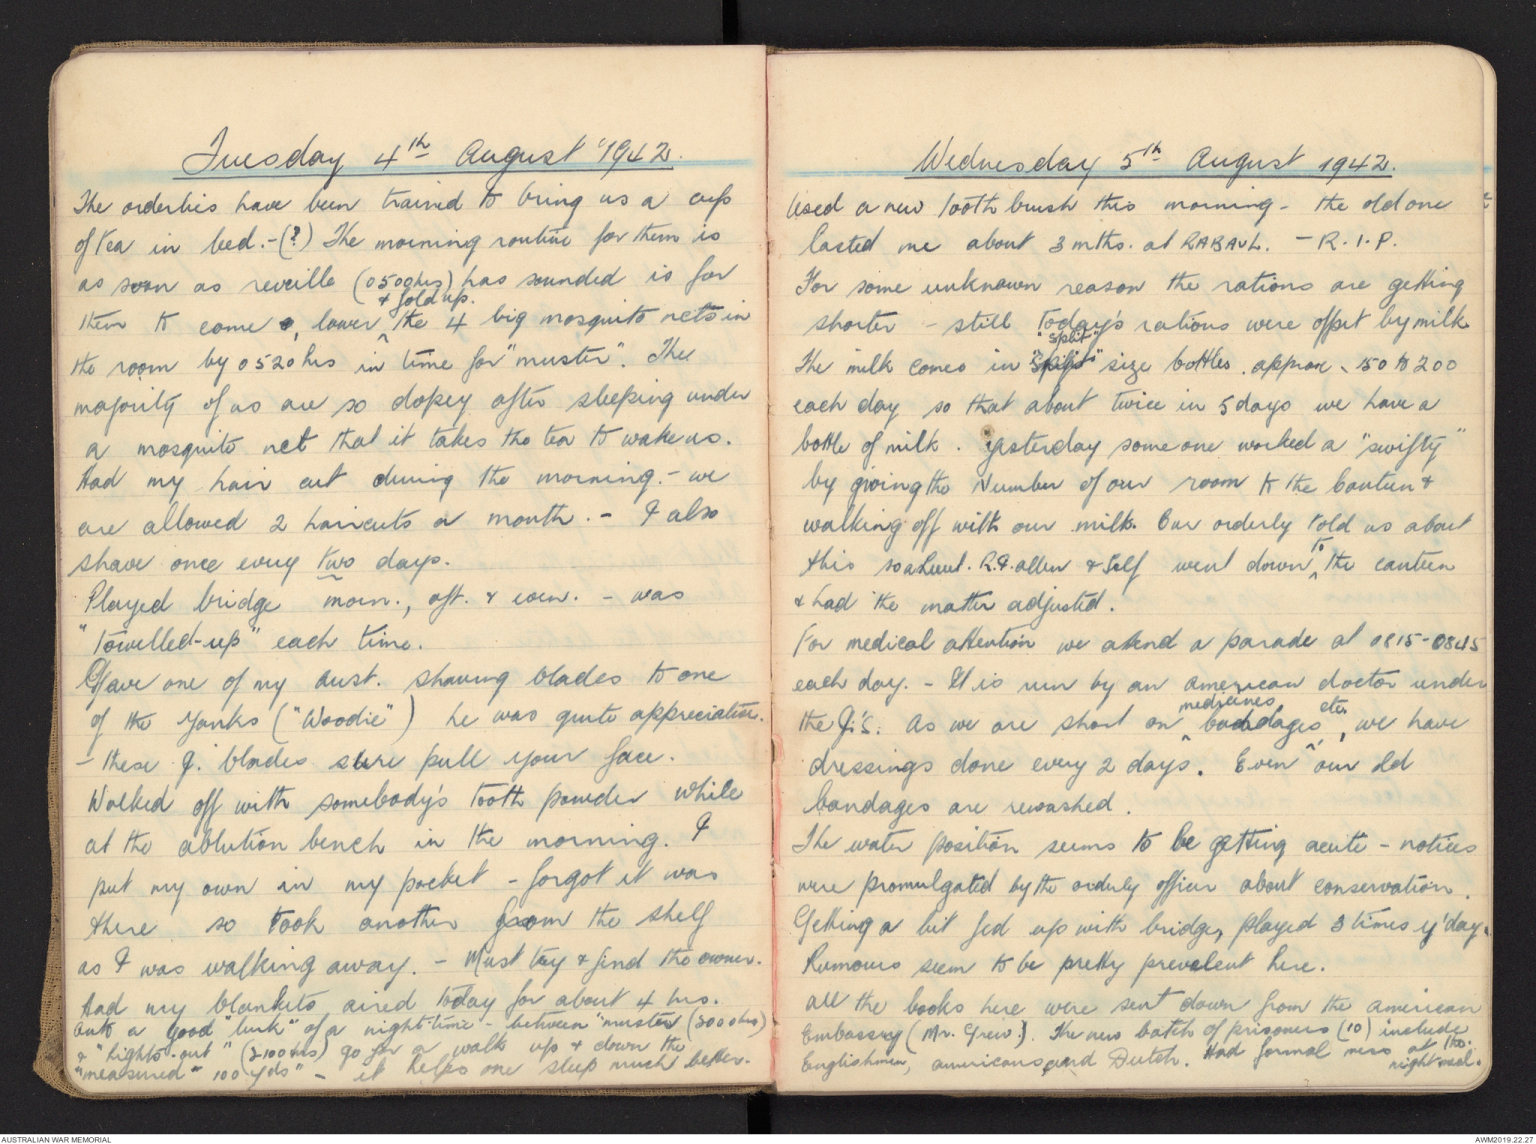 Tuesday 4th August 1942.
The orderlies have been trained to bring us a cup
of tea in bed. - (?) The morning routine for them is
as soon as reveille (0500hrs) has sounded is for
& fold up.
them to come, lower, the 4 big mosquito nets in
the room by 0520 hrs in time for "muster". The
majority of us are so dopey after sleeping under
a mosquito net that it takes the tea to wake us.
Had my hair cut during the morning. - we
are allowed 2 haircuts a month. - I also
shave once every two days.
Played bridge morn., aft. & even. - was
"Towelled-up" each time.
Gave one of my Aust. shaving blades to one
of the Yanks ("Woodie") he was quite appreciative.
- these J. blades sure pull your face.
Walked off with somebody's tooth powder while
at the ablution bench in the morning. I
put my own in my pocket - forgot it was
there so took another from the shelf
as I was walking away. - Must try & find the owner.
Had my blankets aired today for about 4 hrs.
a good "lurk" of a night-time - between "muster (2000hrs)
& "lights-out" (2100hrs) go for a walk up & down the
"measured" 100 yds" - it helps one sleep much better.
Wednesday 5th August 1942.
Used a new tooth brush this morning - the old one
lasted me about 3 mths. at RABAUL. - R.I.P.
For some unknown reason the rations are getting
shorter - still today's rations were offset by milk
"split"
The milk comes in size bottles. approx. 150 to 200
each day so that about twice in 5 days we have a
bottle of milk. Yesterday someone worked a "swifty"
by giving the Number of our room to the Canteen &
walking off with our milk. Our orderly told us about
to
this so a Lieut. R.G. Allen & Self went down the canteen
& had the matter adjusted.
For medical attention we attend a parade at 0815-0845
each day. - It is run by an American doctor under
medicines etc.
the J's. As we are short on bandages, we have
dressings done every 2 days. Even our old
bandages are rewashed.
The water position seems to be getting acute - notices
were promulgated by the orderly officer about conservation.
Getting a bit fed up with bridge, played 3 times y'day.
Rumours seem to be pretty prevalent here.
All the books here were sent down from the American
Embassy (Mr. Grew). The new batch of prisoners (10) include
Englishmen, Americans and Dutch. Had formal mess at the
night meal.
AUSTRALIAN WAR MEMORIAL
AWM2019.22.27